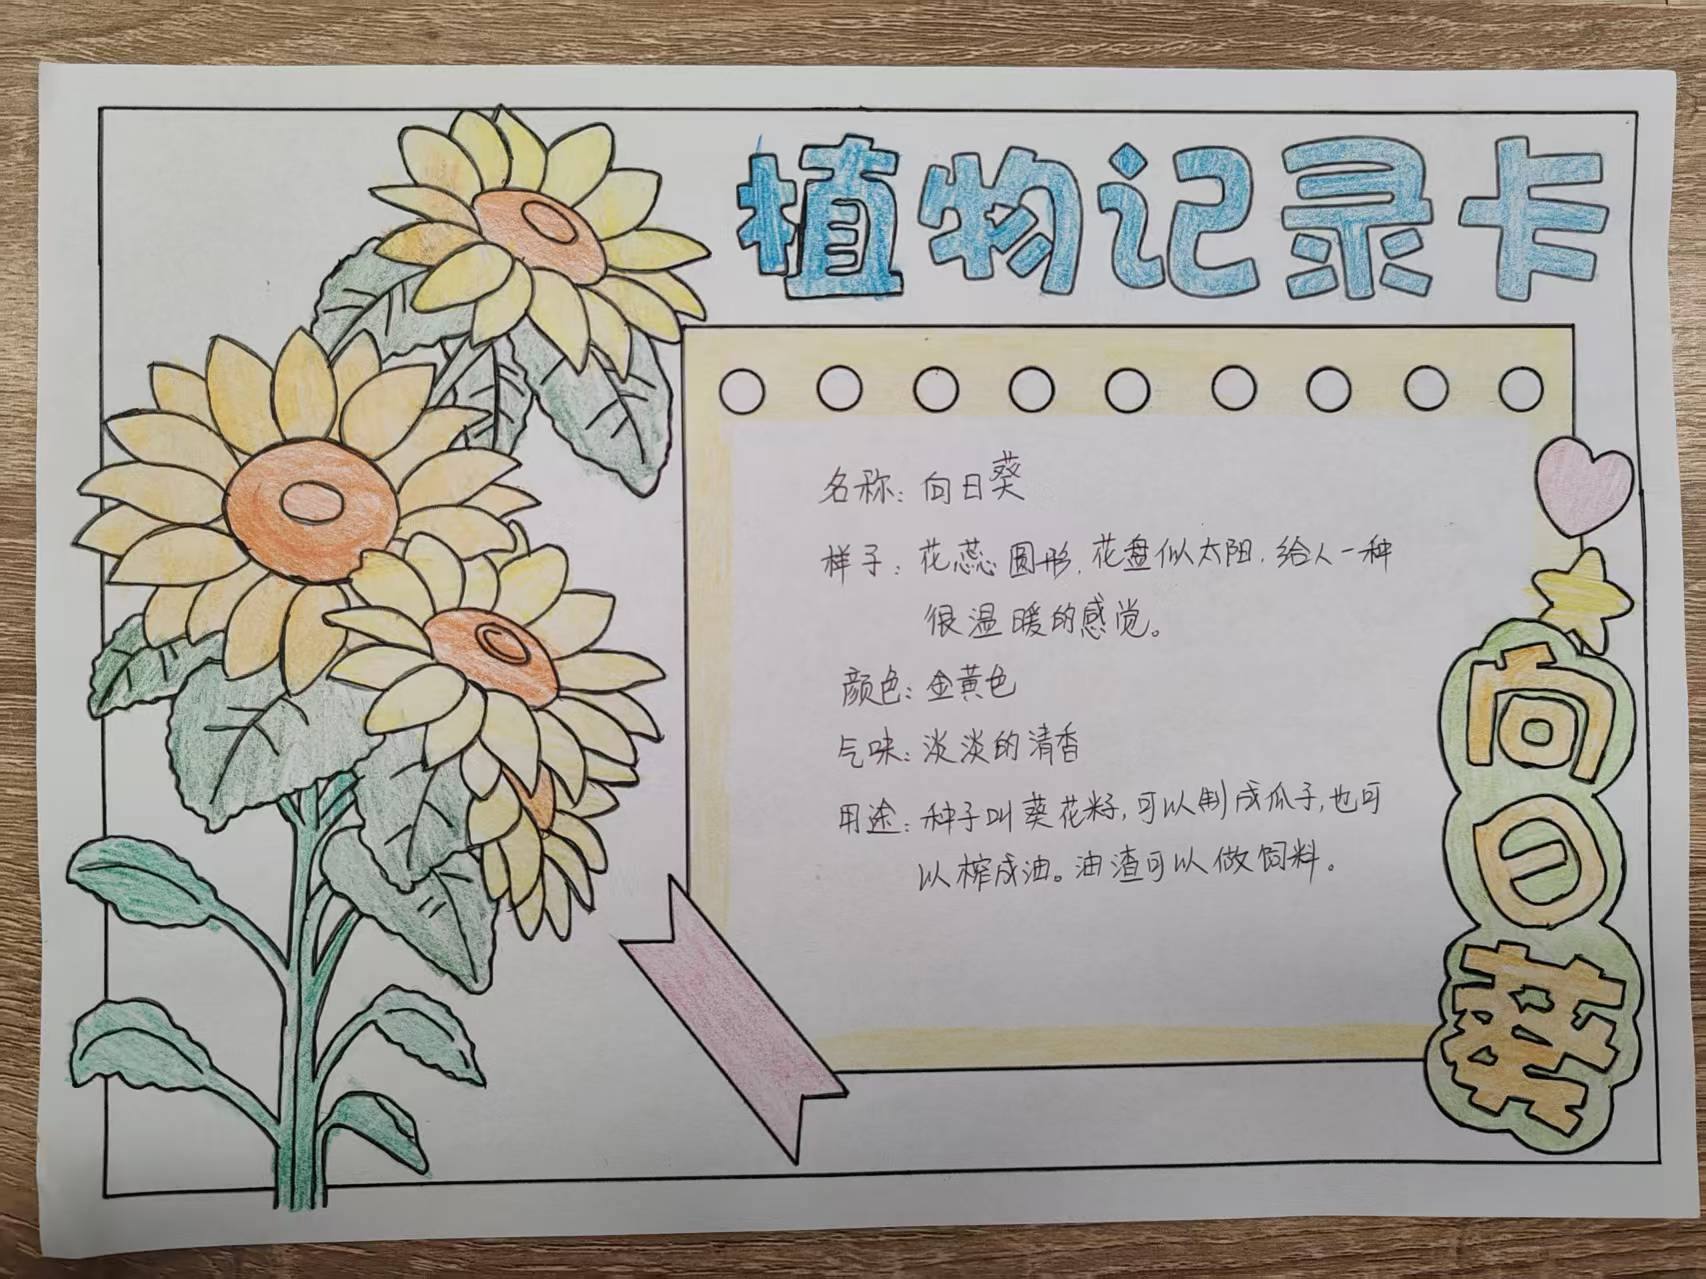 植物记录卡
名称：向日葵
样子：花蕊圆形，花盘似太阳，给人一种
很温暖的感觉。
颜色：金黄色
气味：淡淡的清香
用途：种子叫葵花籽，可以制成瓜子，也可
以榨成油。油渣可以做饲料。
向日葵